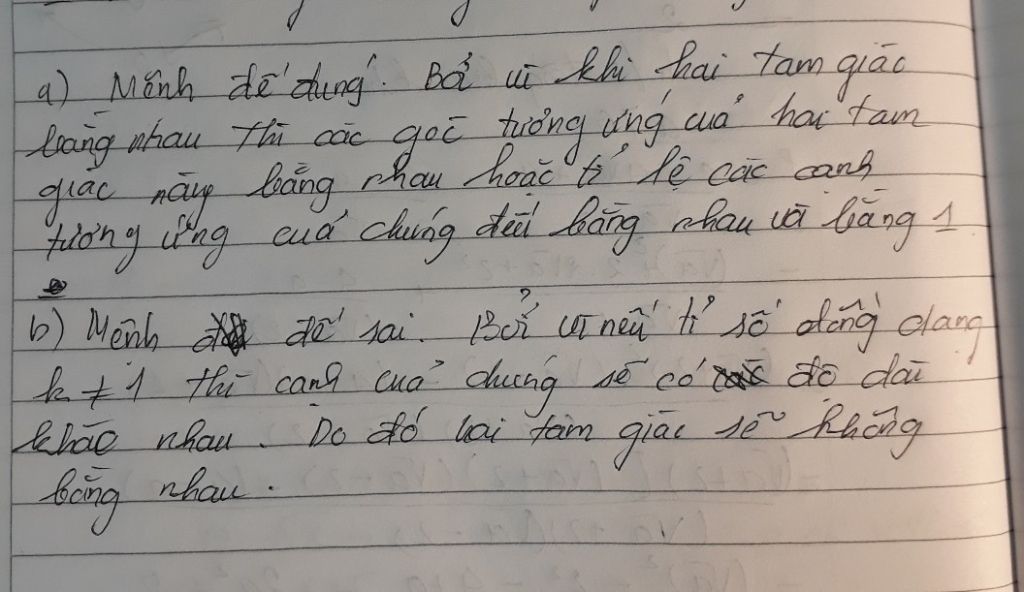 a) Mệnh đề đúng. Bởi vì khi hai tam giác
bằng nhau thì các góc tương ứng của hai tam
giác này bằng nhau hoặc tỉ lệ các cạnh
tương ứng của chúng đều bằng nhau và bằng 1
b) Mệnh đề sai. Bởi vì nếu tỉ số đồng dạng
k ≠ 1 thì cạnh của chúng sẽ có độ dài
khác nhau. Do đó hai tam giác sẽ không
bằng nhau.